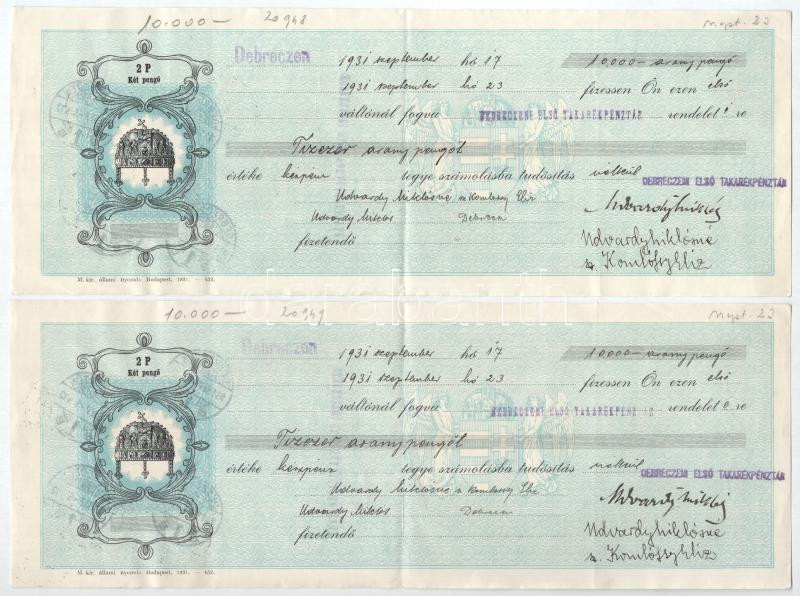 10.000— 20948 Mspt. 23
Debreczen 1931 szeptember hó 17 10.000— arany pengő
2 P
Két pengő
1931 szeptember hó 23 fizessen Ön ezen első
váltónál fogva DEBRECZENI ELSŐ TAKARÉKPÉNZTÁR rendelet e re
Tizezer arany pengőt
értéke készpénz tegye számolásba tudósítás nélkül
DEBRECZENI ELSŐ TAKARÉKPÉNZTÁR
Udvardy Miklósné sz Komlossy Eliz
Udvardy Miklos Debrecen
Udvardy Miklós
fizetendő Udvardy Miklósné
sz. Komlóssy Eliz
M. kir. állami nyomda Budapest, 1931. — 652.
darabanth.com
10.000— 20949 Mspt. 23
Debreczen 1931 szeptember hó 17 10.000— arany pengő
2 P
Két pengő
1931 szeptember hó 23 fizessen Ön ezen első
váltónál fogva DEBRECZENI ELSŐ TAKARÉKPÉNZTÁR rendelet e re
Tizezer arany pengőt
értéke készpénz tegye számolásba tudósítás nélkül
DEBRECZENI ELSŐ TAKARÉKPÉNZTÁR
Udvardy Miklósné sz Komlossy Eliz
Udvardy Miklos Debrecen
Udvardy Miklós
fizetendő Udvardy Miklósné
sz. Komlóssy Eliz
M. kir. állami nyomda Budapest, 1931. — 652.